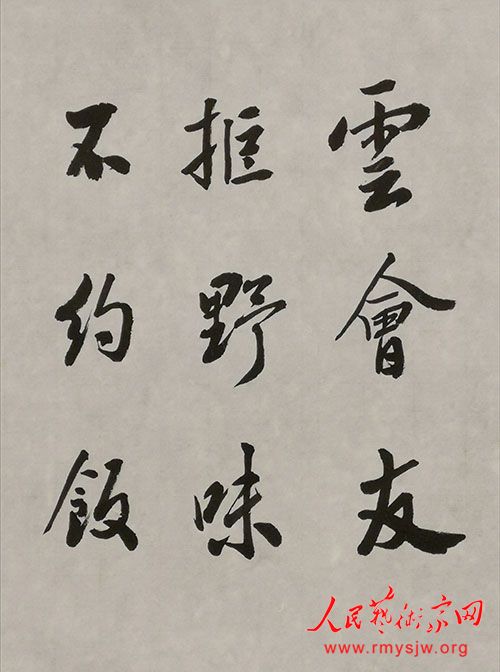 雲會友
拒野味
不約飯
人民藝術家网
www.rmysjw.org